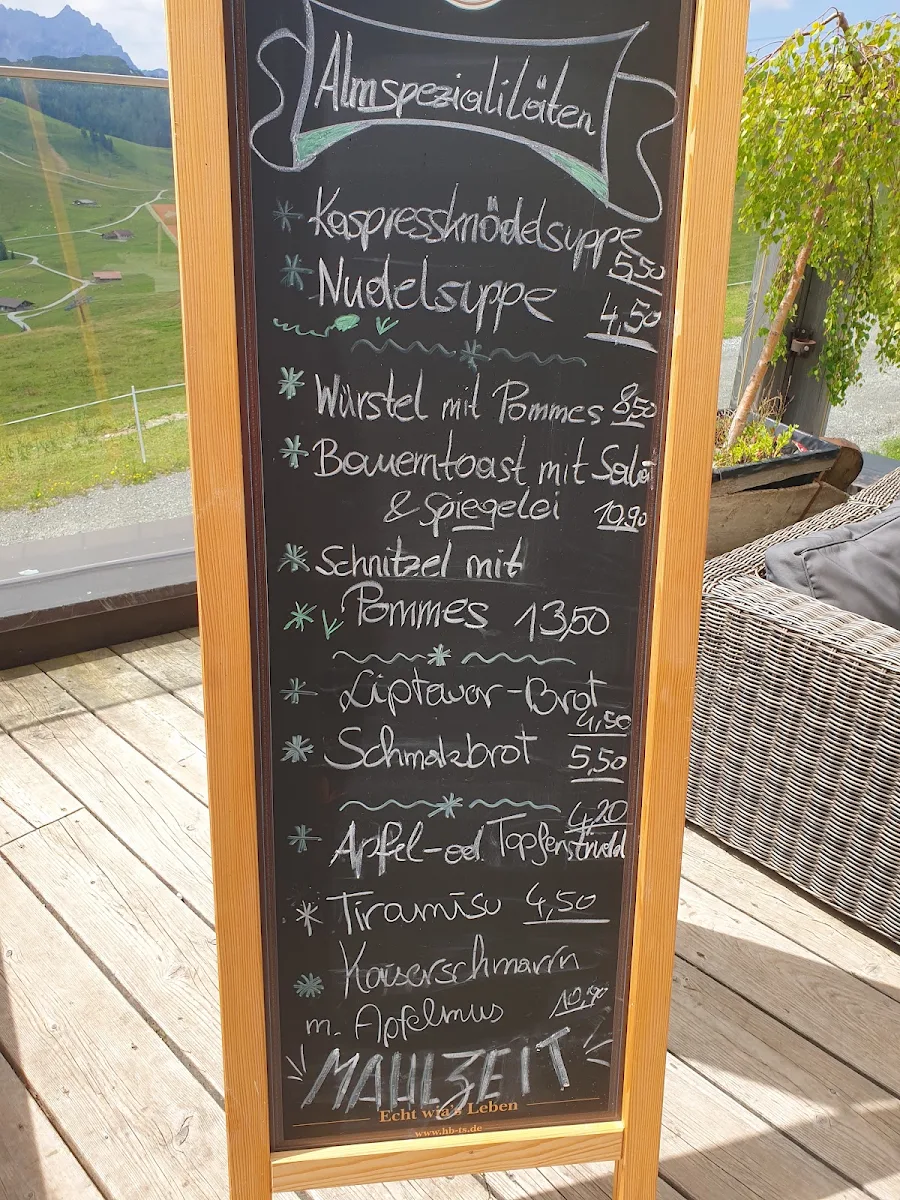 Almspezialitäten
Kaspressknödelsuppe
5,50
Nudelsuppe 4,50
Würstel mit Pommes 8,50
Bauerntoast mit Salat
& Spiegelei 10,90
Schnitzel mit
Pommes 13,50
Liptauar-Brot
4,50
Schmalzbrot 5,50
4,20
Apfel-od Topfenstrudel
Tiramisu 4,50
Kaiserschmarrn
m. Apfelmus 10,90
MAHLZEIT
Echt wia's Leben
www.hb-ts.de